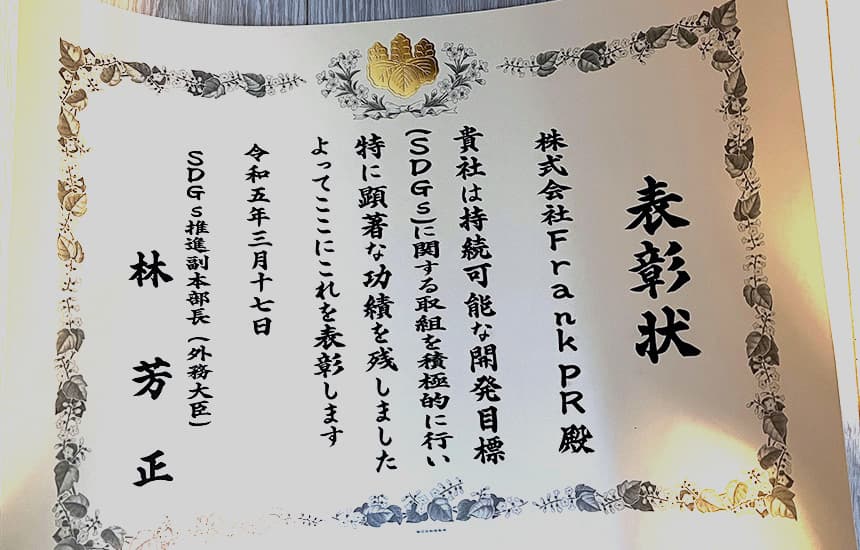 表彰状
株式会社FrankPR殿
貴社は持続可能な開発目標
(SDGs)に関する取組を積極的に行い
特に顕著な功績を残しました
よってここにこれを表彰します
令和五年三月十七日
SDGs推進副本部長(外務大臣)
林芳正